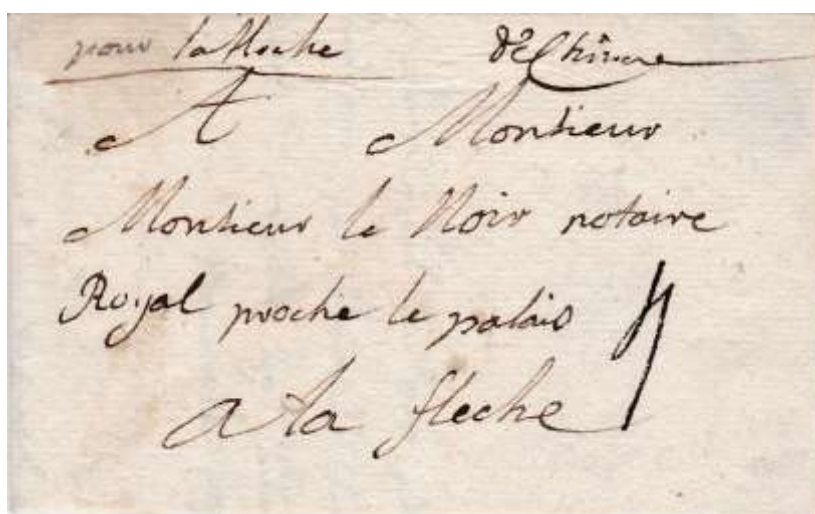 pour lafleche
A Monsieur
Monsieur le Noir notaire
Royal proche le palais
a la fleche